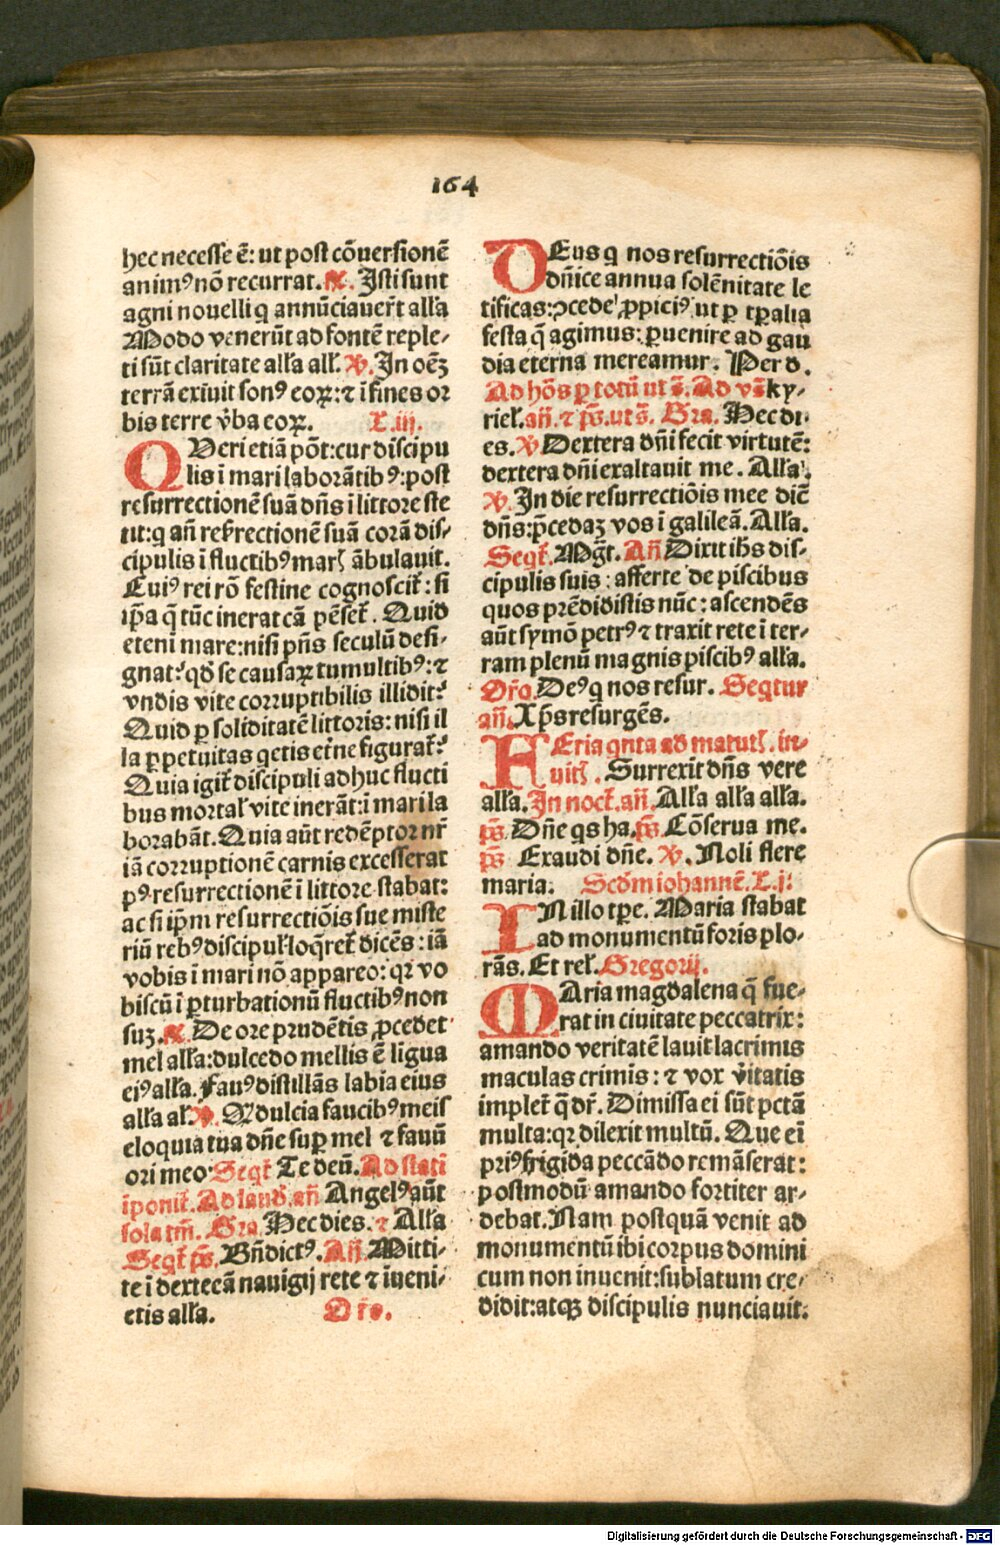 164
hec necesse ē: ut post cōuersionē
animꝰ nō recurrat. ꝶ. Isti sunt
agni nouelli q annūciauer̄t alľa
Modo venerūt ad fontē reple-
ti sūt claritate alľa alľ. ℣. In oēꝫ
terrā exiuit sonꝰ eoꝝ: ⁊ ī fines or
bis terre v̄ba eoꝝ. L. iij.
QUeri etiā pōt: cur discipu
lis ī mari laborātibꝰ: post
resurrectionē suā dn̄s ī littore ste
tit: q an̄ resr̄rectionē suā corā dis-
cipulis ī fluctibꝰ marꝭ ābulauit.
Cuiꝰ rei rō festine cognoscit̄: si
ip̄a q̄ tūc inerat cā pēset̄. Quid
eteni mare: nisi pn̄s seculū desi-
gnat: qd̄ se causaꝝ tumultibꝰ: ⁊
vndis vite corruptibilis illidit:
Quid ꝑ soliditatē littoris: nisi il
la ꝑpetuitas qetis et̄ne figurat̄:
Quia igit̄ discipuli adhuc flucti
bus mortaľ vite inerāt: ī mari la
borabāt. Quia aūt redēptor nr̄
iā corruptionē carnis excesserat
pꝰ resurrectionē ī littore stabat:
ac si ip̄m resurrectiōis sue miste
riū rebꝰ discipuľ loq̄ret̄ dicēs: iā
vobis ī mari nō appareo: qꝛ vo
biscū ī ꝑturbationū fluctibꝰ non
suꝫ. ꝶ. De ore prudētis ꝓcedet
mel alľa: dulcedo mellis ē ligua
eiꝰ alľa. Fauꝰ distillās labia eius
alľa aľ. ℣. Q̄ dulcia faucibꝰ meis
eloquia tua dn̄e suꝑ mel ⁊ fauū
ori meo. Seqt̄ Te deū. Ad stati
īponit̄. Ad laud. an̄ Angelꝰ aūt
sola tm̄. Gra Hec dies. ⁊ Alľa
Seqt̄ p̄s. Bn̄dictꝰ. An̄ Mitti-
te ī dextecā nauigij rete ⁊ īueni-
etis alľa. Oro.
DEus q nos resurrectiōis
dn̄ice annua solēnitate le
tificas: ꝯcede ꝓpiciꝰ ut ꝑ tꝑalia
festa q̄ agimus: ꝑuenire ad gau
dia eterna mereamur. Per d.
Ad hōs ꝑ totū ut s̄. Ad vs̄ ky-
rieľ. an̄. ⁊ p̄s. ut s̄. Gra. Hec di-
es. ℣ Dextera dn̄i fecit virtutē:
dextera dn̄i exaltauit me. Alľa.
℣. In die resurrectiōis mee dic̄
dn̄s: p̄cedaꝫ vos ī galileā. Alľa.
Seqt̄. Mḡt. An̄ Dixit ihs̄ dis-
cipulis suis: afferte de piscibus
quos prēdidistis nūc: ascendēs
aūt symō petrꝰ ⁊ traxit rete ī ter-
ram plenū magnis piscibꝰ alľa.
Or̄o. Deꝰ q nos resur. Seqtur
an̄. Xp̄s resurgēs.
FEria qnta ad matutꝭ. in-
uitꝭ. Surrexit dn̄s vere
alľa. In noct̄. an̄. Alľa alľa alľa.
p̄s. Dn̄e qs ha. p̄s. Cōserua me.
p̄s Exaudi dn̄e. ℣. Noli flere
maria. Scd̄m iohannē. L. j.
IN illo tp̄e. Maria stabat
ad monumentū foris plo-
rās. Et reľ. Gregorij.
MAria magdalena q̄ fue-
rat in ciuitate peccatrix:
amando veritatē lauit lacrimis
maculas crimis: ⁊ vox v̄itatis
implet̄ q̄ dr̄. Dimissa ei sūt pctā
multa: qꝛ dilexit multū. Que ei
priꝰ frigida peccādo remāserat:
postmodū amando fortiter ar-
debat. Nam postquā venit ad
monumentū ibi corpus domini
cum non inuenit: sublatum cre-
didit: atqꝫ discipulis nunciauit.
Digitalisierung gefördert durch die Deutsche Forschungsgemeinschaft - DFG